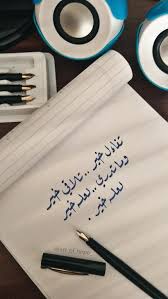 تفاءل خير .. تلاقي خير
وما تدري .. لعله خير
لعله خير .